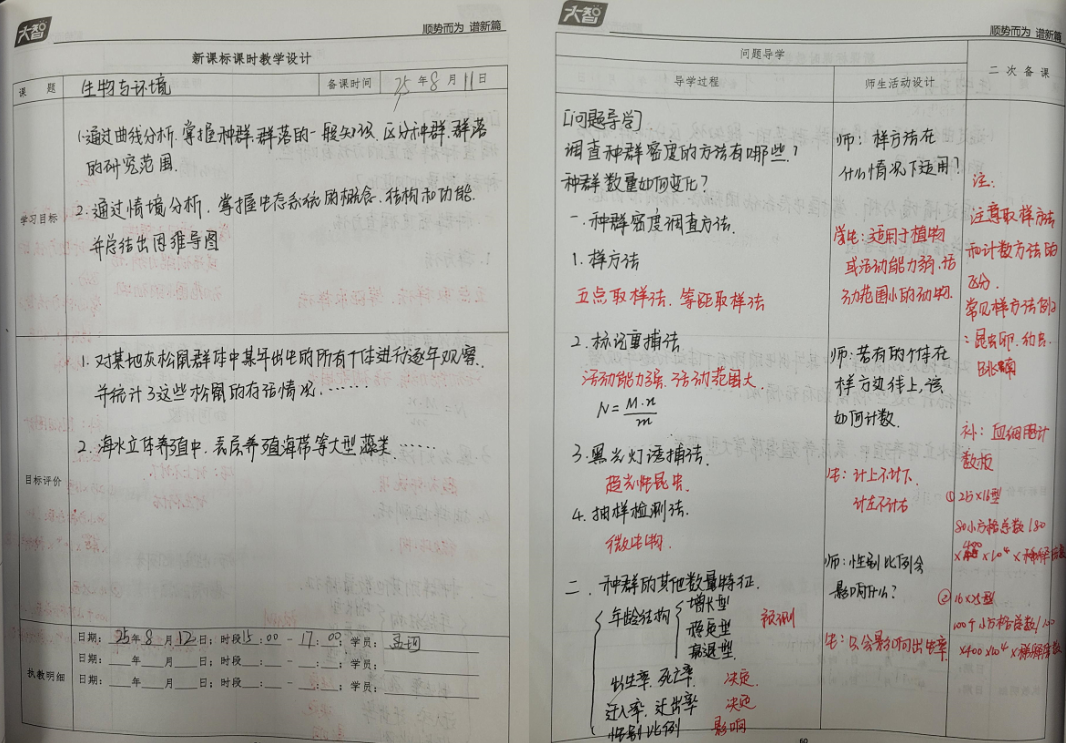 大智
顺势而为 谱新篇
新课标课时教学设计
课 题
生物与环境
备课时间
25年8月11日
学习目标
1.通过曲线分析,掌握种群,群落的一般知识,区分种群,群落
的研究范围.
2.通过情境分析,掌握生态系统的概念、结构和功能.
并总结出思维导图
目标评价
1.对某地灰松鼠群体中某年出生的所有个体进行逐年观察,
并统计了这些松鼠的存活情况,……
2.海水立体养殖中,表层养殖海带等大型藻类……
执教明细
日期: 25年8月12日; 时段15:00 - 17:00; 学员:
日期:___年___月___日; 时段___:___ - ___:___; 学员:
日期:___年___月___日; 时段___:___ - ___:___; 学员:
大智
顺势而为 谱新篇
问题导学
二次备课
导学过程
师生活动设计
[问题导学]
调查种群密度的方法有哪些?
种群数量如何变化?
一.种群密度调查方法.
1.样方法
五点取样法、等距取样法
2.标记重捕法
活动能力强、活动范围大.
N=M·n/m
3.黑光灯诱捕法.
趋光性昆虫.
4.抽样检测法.
微生物.
二、种群的其他数量特征.
年龄结构
增长型
稳定型
衰退型
预测
出生率、死亡率 决定.
迁入率、迁出率 决定
性别比例 影响
师:样方法在
什么情况下适用?
学生:适用于植物
或活动能力弱,活
动范围小的动物.
师:若有的个体在
样方边线上,该
如何计数.
生:计上不计下.
计左不计右
师:性别比例会
影响什么?
生:只会影响出生率.
注:
注意取样方法
和计数方法的
区分.
常见样方法例子
:昆虫卵、幼虫.
补:血细胞计
数板
① 25×16型
80小方格总数/80
×400×10⁴×稀释倍数
② 16×25型
100个小方格总数/100
×400×10⁴×稀释倍数